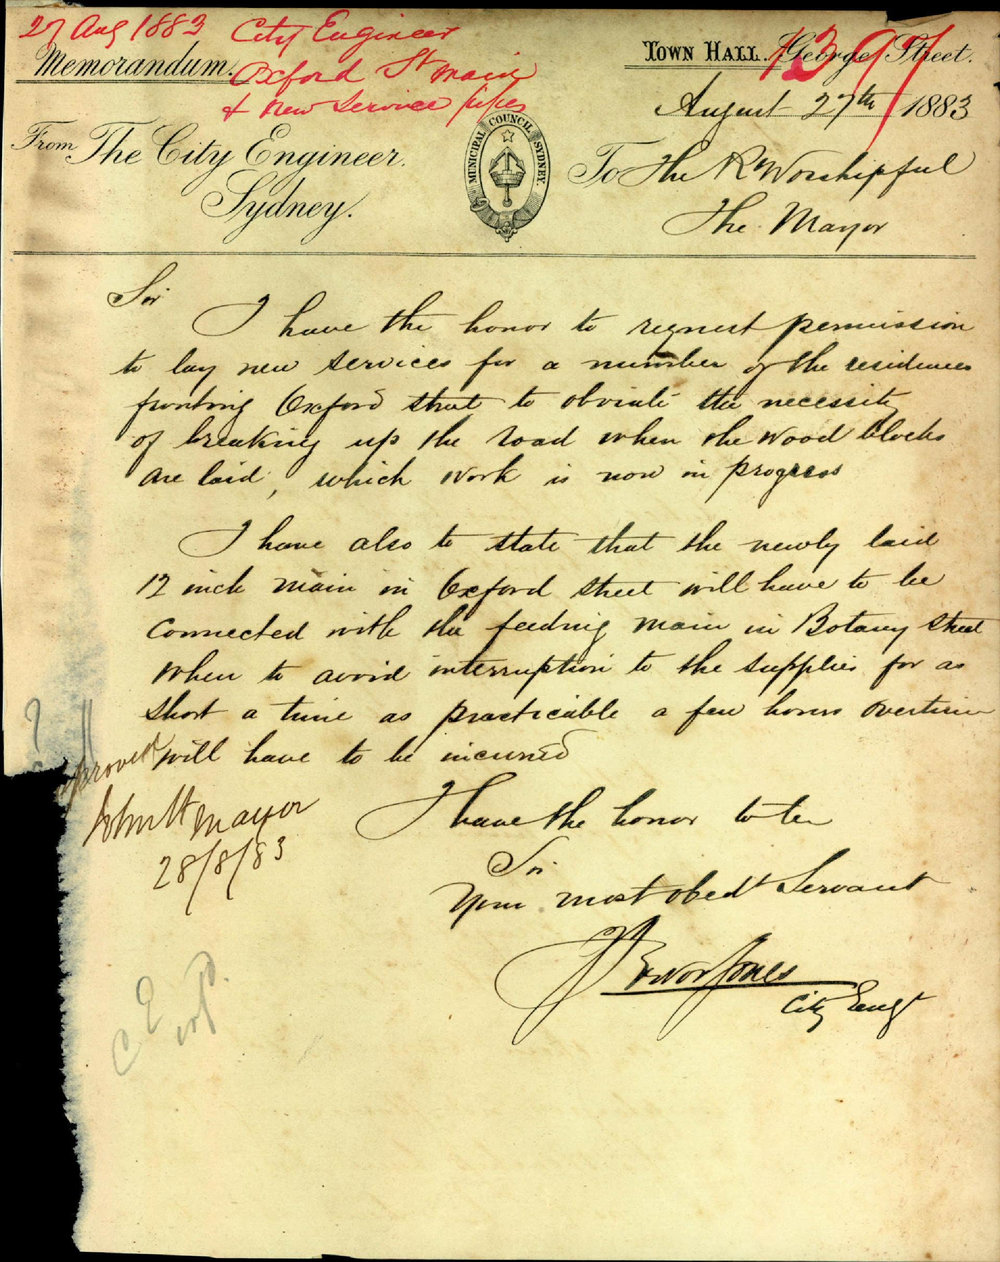 27 Aug 1883 City Engineer
Oxford St main
& new service pipes
1397
Memorandum.
Town Hall. George Street.
August 27th 1883
From The City Engineer.
Sydney.
MUNICIPAL COUNCIL SYDNEY.
To The Rt Worshipful
The Mayor
Sir
I have the honor to request permission
to lay new services for a number of the residences
fronting Oxford street to obviate the necessity
of breaking up the road when the wood blocks
are laid, which work is now in progress
I have also to state that the newly laid
12 inch main in Oxford street will have to be
connected with the feeding main in Botany street
when to avoid interruption to the supplies for as
short a time as practicable a few hours overtime
will have to be incurred
approved
John H Mayor
28/8/83
I have the honor to be
Sir
Your most obedt Servant
Trevor Jones
City Engr
C E